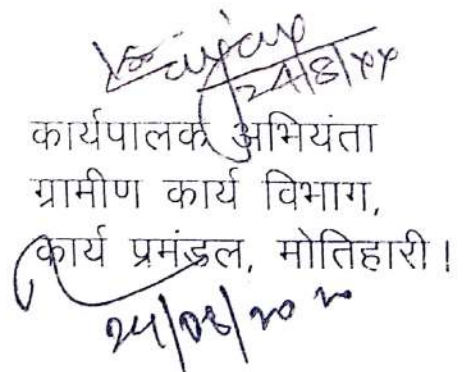 24/8/22
कार्यपालक अभियंता
ग्रामीण कार्य विभाग,
कार्य प्रमंडल, मोतिहारी।